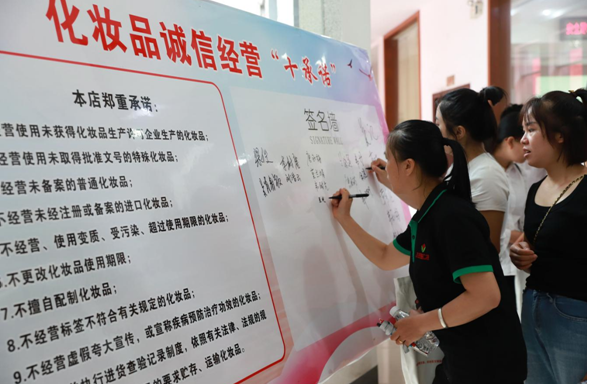 化妆品诚信经营“十承诺”
本店郑重承诺:
经营使用未获得化妆品生产许可企业生产的化妆品;
经营使用未取得批准文号的特殊化妆品;
经营使用未备案的普通化妆品;
不经营未经注册或备案的进口化妆品;
不经营、使用变质、受污染、超过使用期限的化妆品;
6.不更改化妆品使用期限;
7.不擅自配制化妆品;
8.不经营标签不符合有关规定的化妆品;
9.不经营虚假夸大宣传,或宣称疾病预防治疗功效的化妆品;
执行进货查验记录制度,依照有关法律、法规的
要求贮存、运输化妆品。
签名墙
SIGNATURE WALL